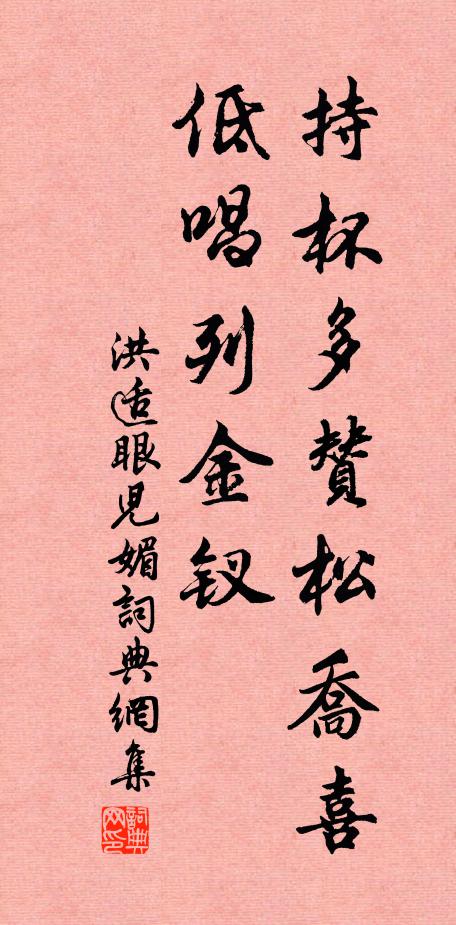 持杯多赞松喬喜
低唱列金钗
洪适眼児媚詞典網集
詞典网印